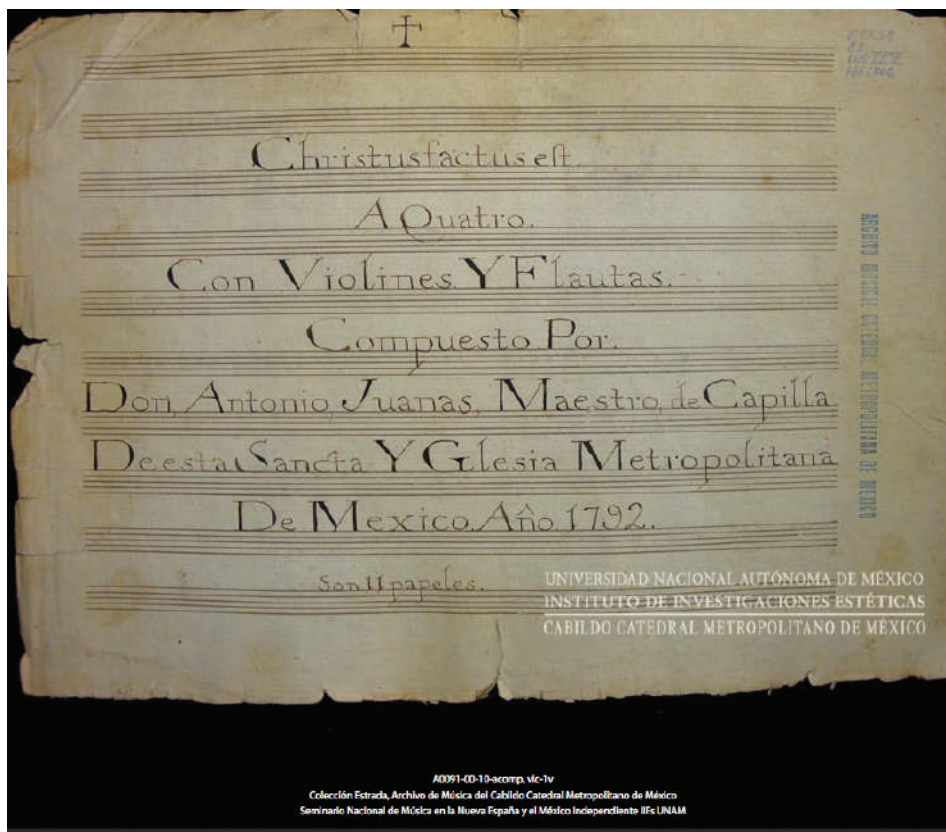 Christus factus est.
A Quatro.
Con Violines Y Flautas.
Compuesto Por.
Don, Antonio, Juanas, Maestro, de Capilla
De esta Sancta Y Glesia Metropolitana
De Mexico. Año 1792.
Son 11 papeles.
ARCHIVO MUSICAL CATEDRAL METROPOLITANA DE MEXICO
UNIVERSIDAD NACIONAL AUTÓNOMA DE MÉXICO
INSTITUTO DE INVESTIGACIONES ESTÉTICAS
CABILDO CATEDRAL METROPOLITANO DE MÉXICO
A0091-00-10-acomp, vlc-1v
Colección Estrada, Archivo de Música del Cabildo Catedral Metropolitano de México
Seminario Nacional de Música en la Nueva España y el México Independiente IIEs UNAM